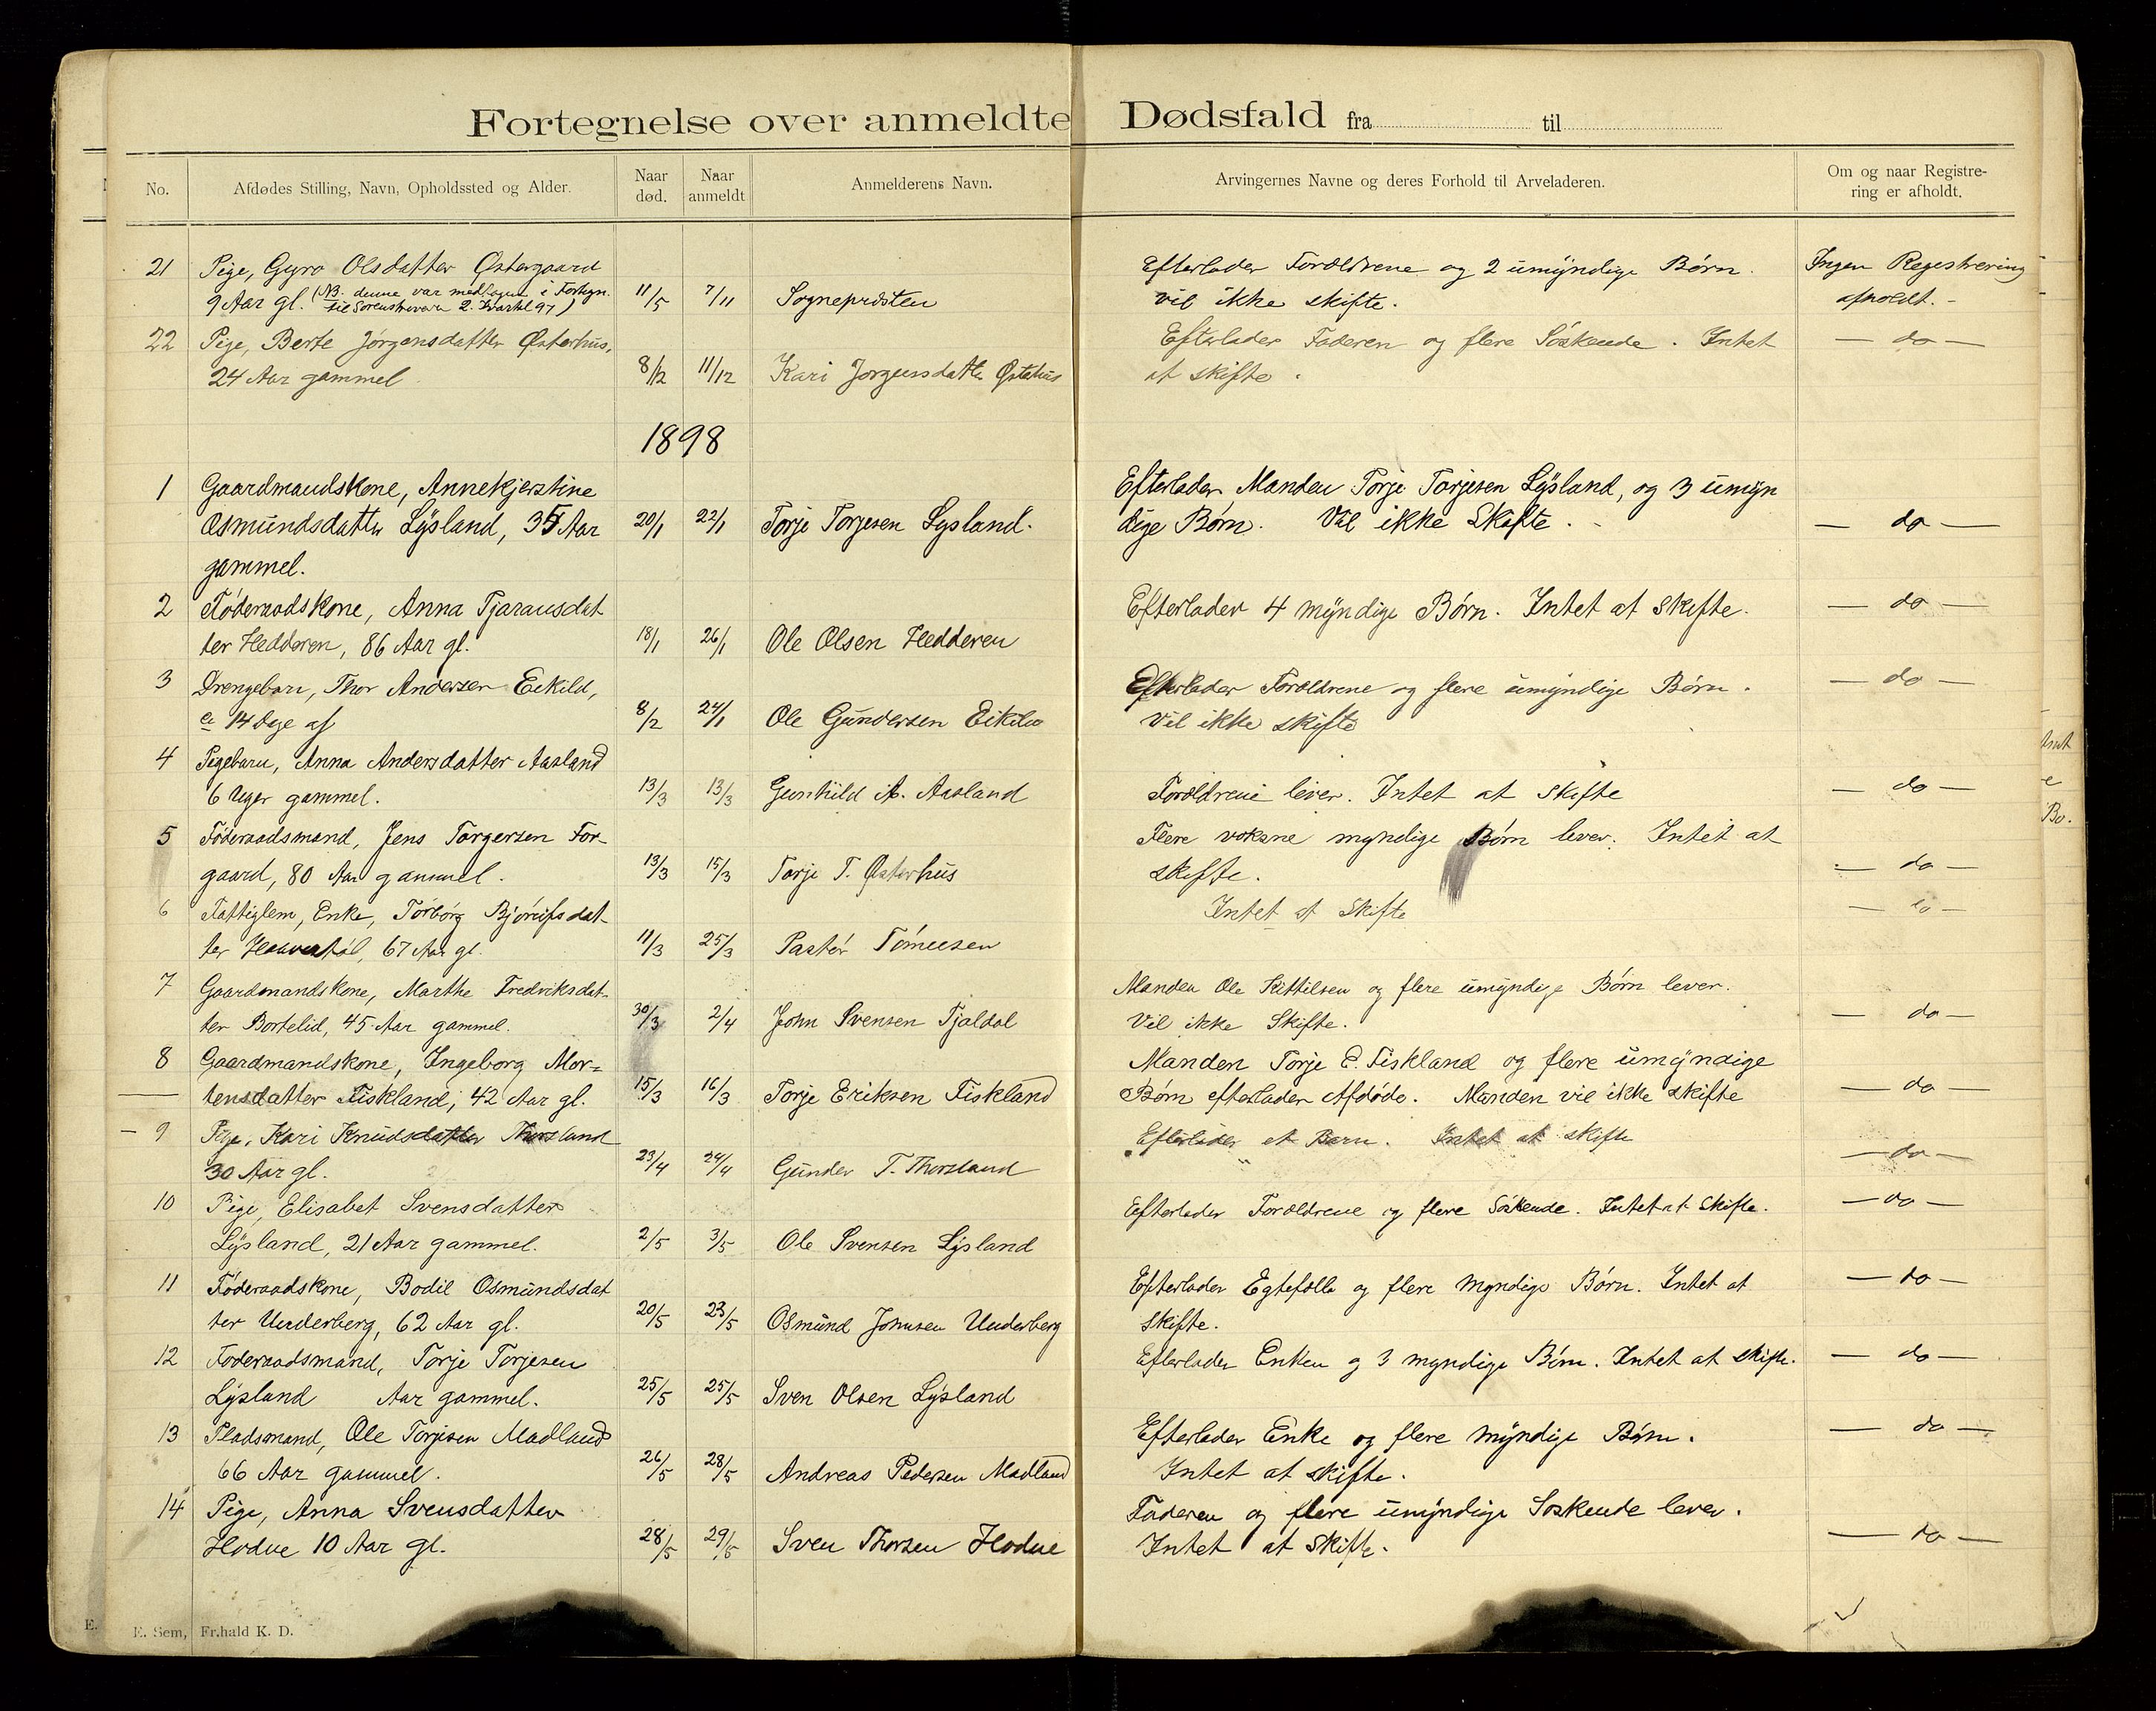 Fortegnelse over anmeldte Dødsfald fra til
No. Afdødes Stilling, Navn, Opholdssted og Alder. Naar død. Naar anmeldt Anmelderens Navn. Arvingernes Navne og deres Forhold til Arveladeren. Om og naar Registrering er afholdt.
21 Pige, Gyro Olsdatter Østergaard Efterlader Forældrene og 2 umyndige Børn. Ingen Registrering
9 Aar gl. (NB. denne var medtagen i Fortegn. til Sorenskriveren 2. Kvartal 97) 11/5 7/11 Sognepræsten vil ikke skifte. afholdt. -
22 Pige, Berte Jørgensdatter Østerhus, Efterlader Faderen og flere Söskende. Intet — do —
24 Aar gammel 8/12 11/12 Kari Jørgensdatter Østerhus at skifte.
1898
1 Gaardmandskone, Annekjerstine Efterlader Manden Torje Torjesen Lÿsland, og 3 umÿn
Osmundsdatter Lÿsland, 35 Aar 20/1 22/1 Torje Torjesen Lysland. dige Børn. Vil ikke Skifte. — do —
gammel.
2 Föderaadskone, Anna Tjaransdat Efterlader 4 mÿndige Børn. Intet at skifte. — do —
ter Hedderen, 86 Aar gl. 18/1 26/1 Ole Olsen Hedderen
3 Drengebarn, Thor Andersen Eikild, Efterlader Forældrene og flere umÿndige Børn. — do —
ca 14 Dage af 8/2 24/1 Ole Gundersen Eikild Vil ikke skifte
4 Pigebarn, Anna Andersdatter Aasland
6 Uger gammel. 13/3 13/3 Gunhild A. Aasland Forældrene lever. Intet at skifte — do —
5 Föderaadsmand, Jens Torgersen For- Flere voksne myndige Børn lever. Intet at
gaard, 80 Aar gammel. 13/3 15/3 Torje T. Østerhus skifte. — do —
6 Fattiglem, Enke, Torborg Bjørulfsdat- Intet at skifte — do —
ter 67 Aar gl. 11/3 25/3 Pastor
7 Gaardmandskone, Marthe Fredriksdat- Manden Ole Kittilsen og flere umyndige Børn lever.
ter Bortelid, 45 Aar gammel. 30/3 2/4 John Svensen Tjaldal Vil ikke Skifte. — do —
8 Gaardmandskone, Ingeborg Mor= Manden Torje E. Fiskland og flere umÿndige
tensdatter Fiskland, 42 Aar gl. 15/3 16/3 Torje Eriksen Fiskland Børn efterlader Afdøde. Manden vil ikke skifte — do —
— 9 Pige, Kari Knudsdatter Thorsland Efterlader et Barn. Intet at skifte
30 Aar gl. 23/4 24/4 Gunder T. Thorsland — do —
10 Pige, Elisabet Svensdatter Efterlader Forældrene og flere Söskende. Intet at skifte. — do —
Lÿsland, 21 Aar gammel. 2/5 3/5 Ole Svensen Lÿsland
11 Föderaadskone, Bodil Osmundsdat Efterlader Egtefælle og flere myndige Børn. Intet at — do —
ter Underberg, 62 Aar gl. 20/5 23/5 Osmund Johnsen Underberg skifte.
12 Föderaadsmand, Torje Torjesen Efterlader Enken og 3 myndige Børn. Intet at skifte. — do —
Lÿsland Aar gammel. 25/5 25/5 Sven Olsen Lÿsland
13 Pladsmand, Ole Torjesen Madland Efterlader Enke og flere mÿndige Børn. — do —
66 Aar gammel. 26/5 28/5 Andreas Pedersen Madland Intet at skifte.
14 Pige, Anna Svensdatter Faderen og flere umÿndige Søskende lever.
Hodne 10 Aar gl. 28/5 29/5 Sven Thorsen Hodne Intet at skifte. — do —
E. Sem, Fr.hald K. D.